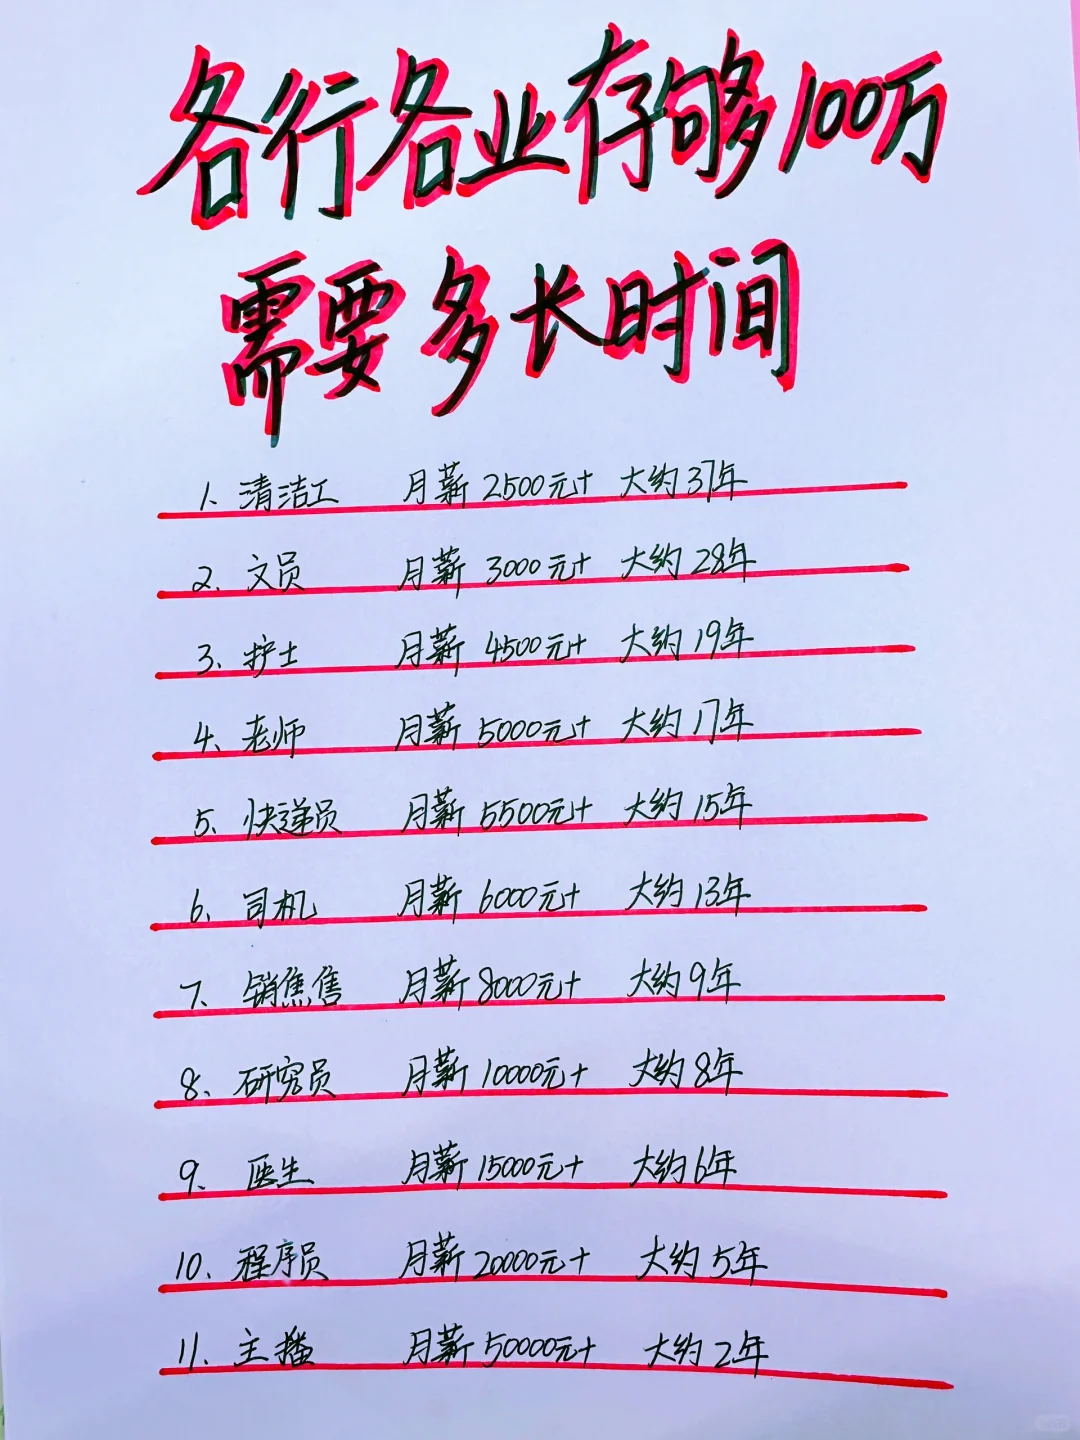 各行各业存够100万
需要多长时间
1、清洁工 月薪2500元+ 大约37年
2、文员 月薪3000元+ 大约28年
3、护士 月薪4500元+ 大约19年
4、老师 月薪5000元+ 大约17年
5、快递员 月薪5500元+ 大约15年
6、司机 月薪6000元+ 大约13年
7、销售 月薪8000元+ 大约9年
8、研究员 月薪10000元+ 大约8年
9、医生 月薪15000元+ 大约6年
10、程序员 月薪20000元+ 大约5年
11、主播 月薪50000元+ 大约2年